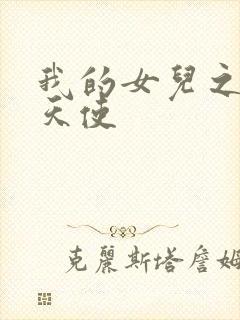 我的女兒之
天使
克麗斯塔詹姆